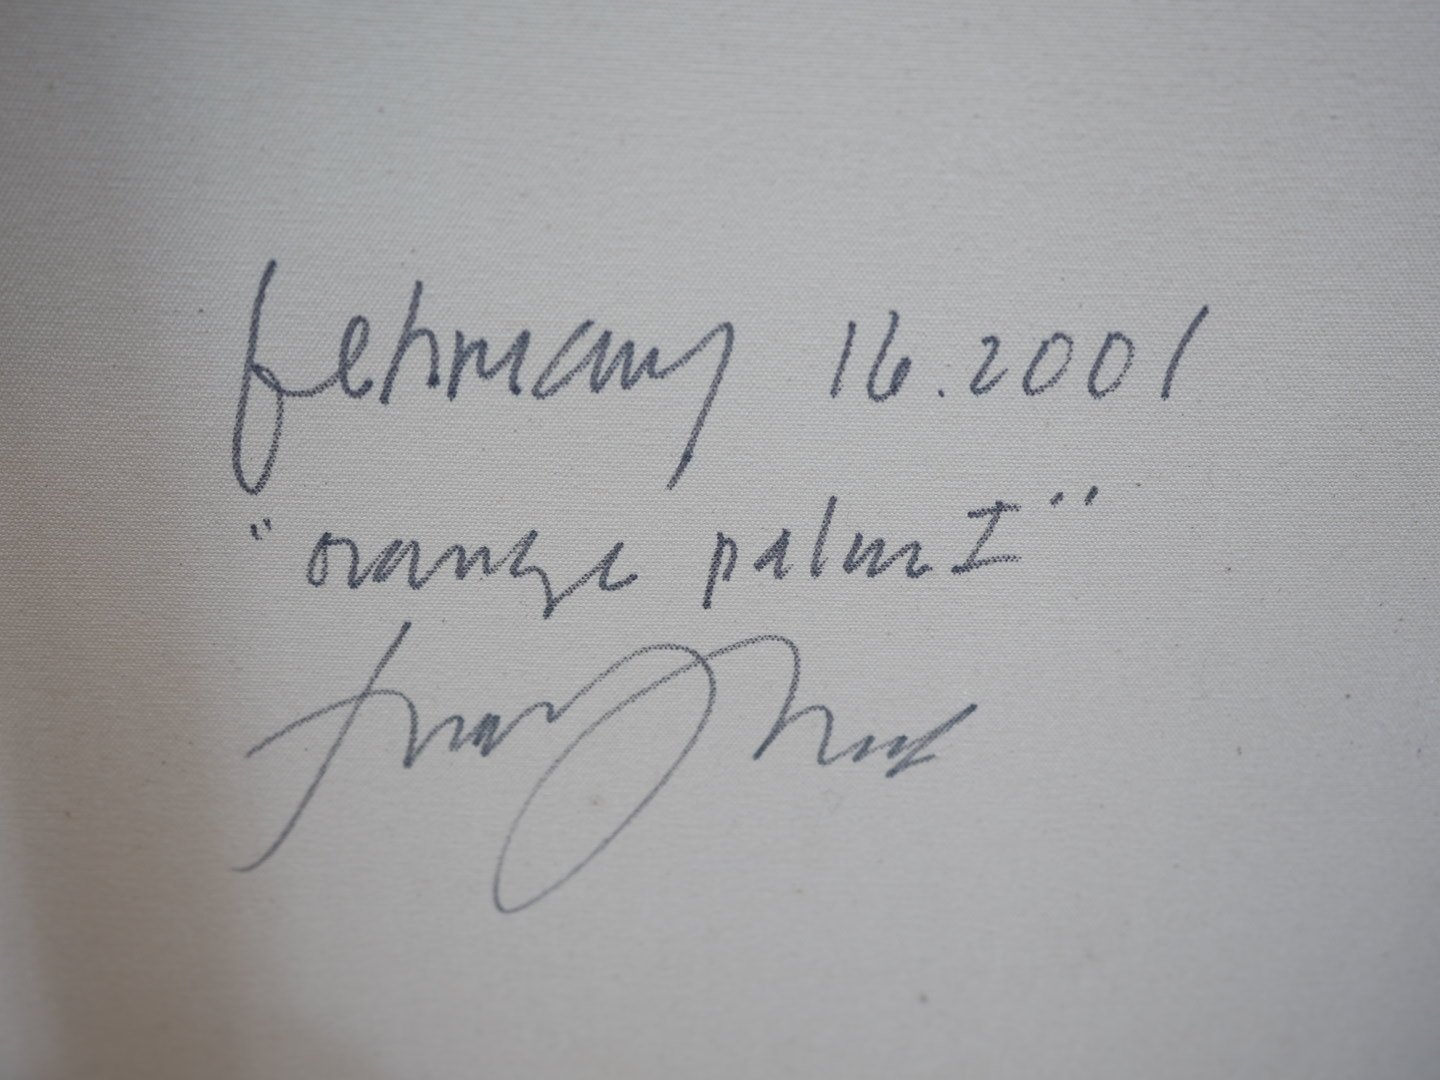 february 16.2001
"orange palm I"